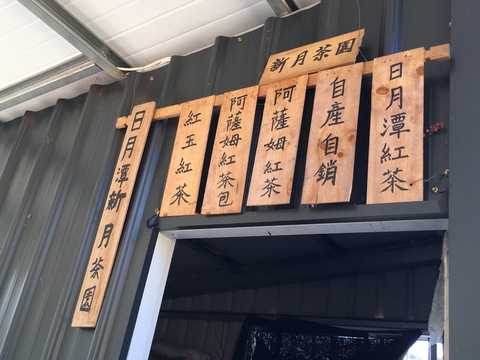 新月茶園
日月潭紅茶
自產自銷
阿薩姆紅茶
阿薩姆紅茶包
紅玉紅茶
日月潭新月茶園